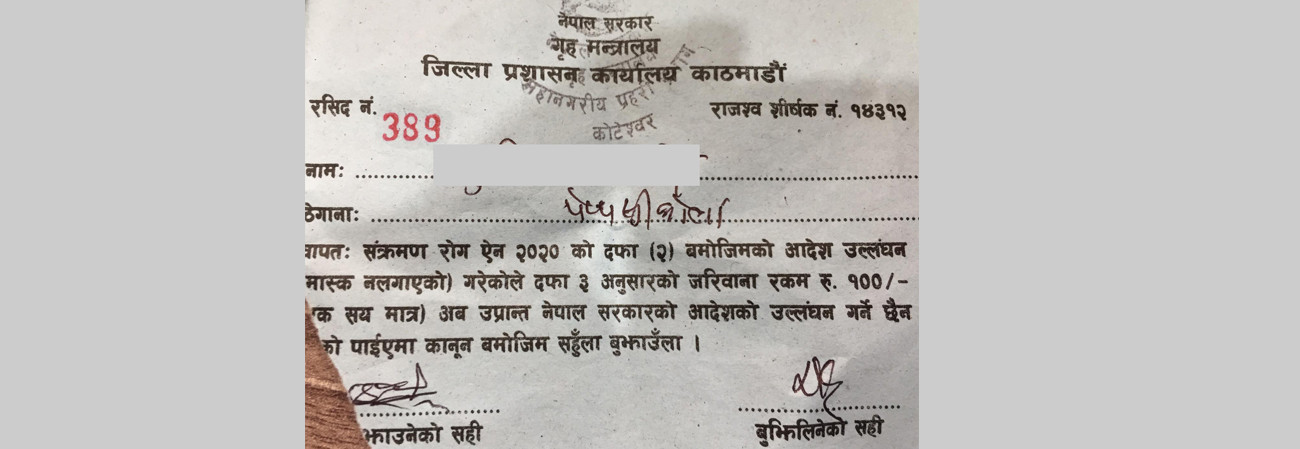 नेपाल सरकार
गृह मन्त्रालय
जिल्ला प्रशासन कार्यालय काठमाडौं
महानगरीय प्रहरी
कोटेश्वर
रसिद नं. 389
राजश्व शीर्षक नं. १४३१२
नामः
ठेगानाः
बापतः संक्रमण रोग ऐन २०२० को दफा (२) बमोजिमको आदेश उल्लंघन
मास्क नलगाएको) गरेकोले दफा ३ अनुसारको जरिवाना रकम रु. १००/-
क सय मात्र) अब उप्रान्त नेपाल सरकारको आदेशको उल्लंघन गर्ने छैन
को पाईएमा कानून बमोजिम सहुँला बुझाउँला ।
झाउनेको सही
बुझिलिनेको सही